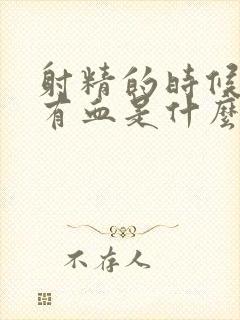 射精的時候
有血是什麼
不存人